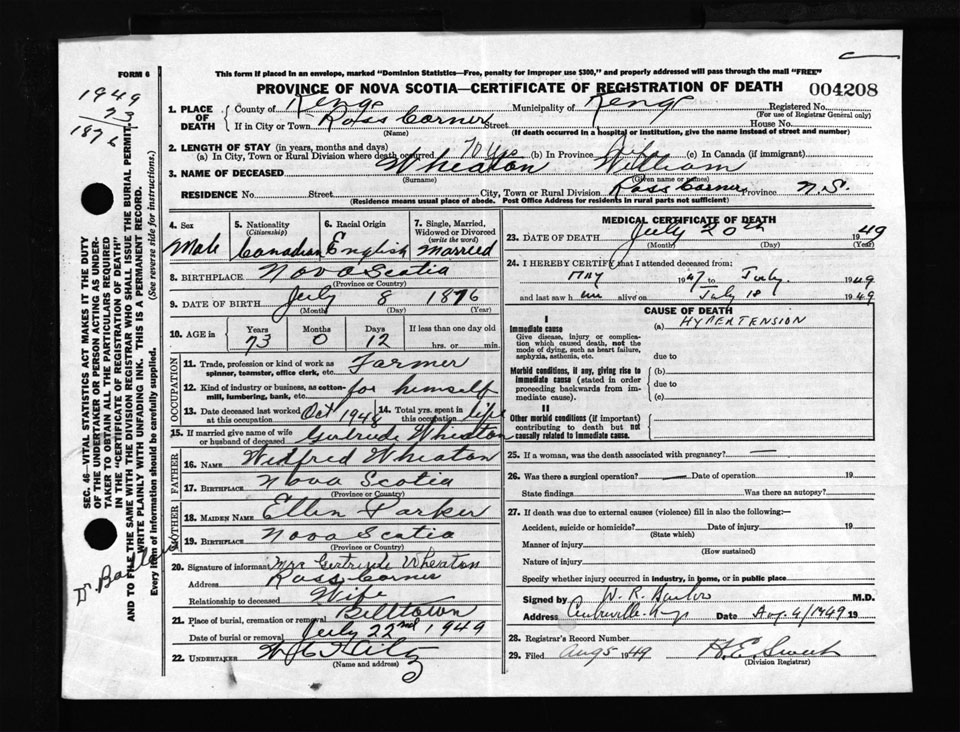 FORM 6
This form if placed in an envelope, marked "Dominion Statistics—Free, penalty for improper use $300," and properly addressed will pass through the mail "FREE"
PROVINCE OF NOVA SCOTIA—CERTIFICATE OF REGISTRATION OF DEATH 004208
1949
7
1876
1. PLACE OF DEATH County of Kings Municipality of Kings Registered No.
(For use of Registrar General only)
If in City or Town Ross Corner Street House No.
(Name) (If death occurred in a hospital or institution, give the name instead of street and number)
2. LENGTH OF STAY (in years, months and days)
(a) In City, Town or Rural Division where death occurred 70 yrs (b) In Province (c) In Canada (if immigrant)
3. NAME OF DECEASED Wheaton William
(Surname) (Given name or names)
RESIDENCE No. Street City, Town or Rural Division Ross Corner Province N.S.
(Residence means usual place of abode. Post Office Address for residents in rural parts not sufficient)
4. Sex Male
5. Nationality (Citizenship) Canadian
6. Racial Origin English
7. Single, Married, Widowed or Divorced (write the word) Married
8. BIRTHPLACE Nova Scotia
(Province or Country)
9. DATE OF BIRTH July 8 1876
(Month) (Day) (Year)
10. AGE in Years Months Days If less than one day old
73 0 12 hrs. or min.
OCCUPATION
11. Trade, profession or kind of work as spinner, teamster, office clerk, etc. Farmer
12. Kind of industry or business, as cotton-mill, lumbering, bank, etc. for himself
13. Date deceased last worked at this occupation Oct 1948
14. Total yrs. spent in this occupation life
15. If married give name of wife or husband of deceased Gertrude Wheaton
FATHER
16. NAME Wilfred Wheaton
17. BIRTHPLACE Nova Scotia
(Province or Country)
MOTHER
18. MAIDEN NAME Ellen Parker
19. BIRTHPLACE Nova Scotia
(Province or Country)
20. Signature of informant Mrs Gertrude Wheaton
Address Ross Corner
Relationship to deceased Wife
21. Place of burial, cremation or removal Billtown
Date of burial or removal July 22nd 1949
22. UNDERTAKER
(Name and address)
MEDICAL CERTIFICATE OF DEATH
23. DATE OF DEATH July 20th 1949
(Month) (Day) (Year)
24. I HEREBY CERTIFY that I attended deceased from:
May 1947 to July 1949
and last saw him alive on July 18 1949
CAUSE OF DEATH
I
Immediate cause (a) HYPERTENSION
Give disease, injury or complication which caused death, not the mode of dying, such as heart failure, asphyxia, asthenia, etc.
due to
Morbid conditions, if any, giving rise to immediate cause (stated in order proceeding backwards from immediate cause).
(b)
due to
(c)
II
Other morbid conditions (if important) contributing to death but not causally related to immediate cause.
25. If a woman, was the death associated with pregnancy? —
26. Was there a surgical operation? — Date of operation 19
State findings Was there an autopsy?
27. If death was due to external causes (violence) fill in also the following:—
Accident, suicide or homicide? Date of injury 19
(State which)
Manner of injury
(How sustained)
Nature of injury
Specify whether injury occurred in industry, in home, or in public place
Signed by M.D.
Address Date Aug. 4/1949 19
28. Registrar's Record Number
29. Filed Aug 5 1949
(Division Registrar)
SEC. 46—VITAL STATISTICS ACT MAKES IT THE DUTY
OF THE UNDERTAKER OR PERSON ACTING AS UNDER-
TAKER TO OBTAIN ALL THE PARTICULARS REQUIRED
IN THE "CERTIFICATE OF REGISTRATION OF DEATH"
AND TO FILE THE SAME WITH THE DIVISION REGISTRAR WHO SHALL ISSUE THE BURIAL PERMIT.
WRITE PLAINLY WITH UNFADING INK. THIS IS A PERMANENT RECORD.
Every item of information should be carefully supplied. (See reverse side for instructions.)